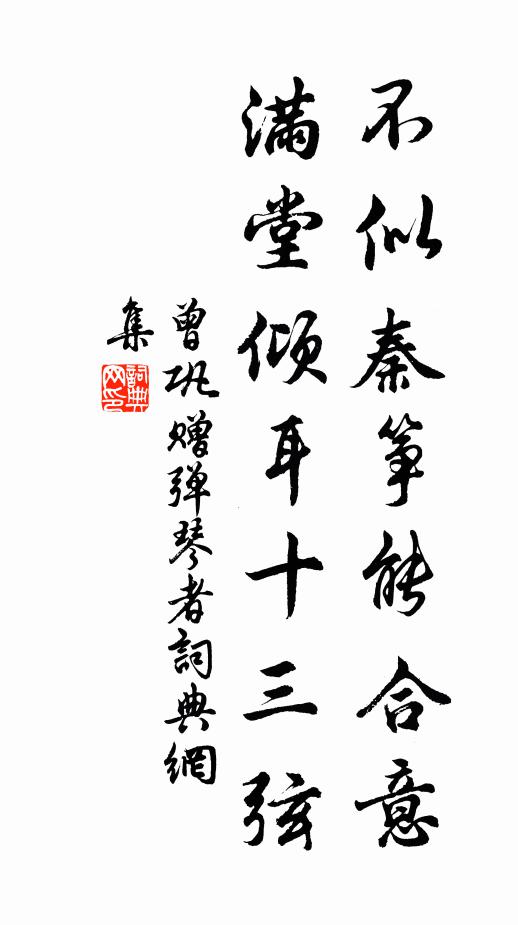 不似秦筝能合意
满堂倾耳十三弦
曾巩赠弹琴者詞典網
集
詞典网印